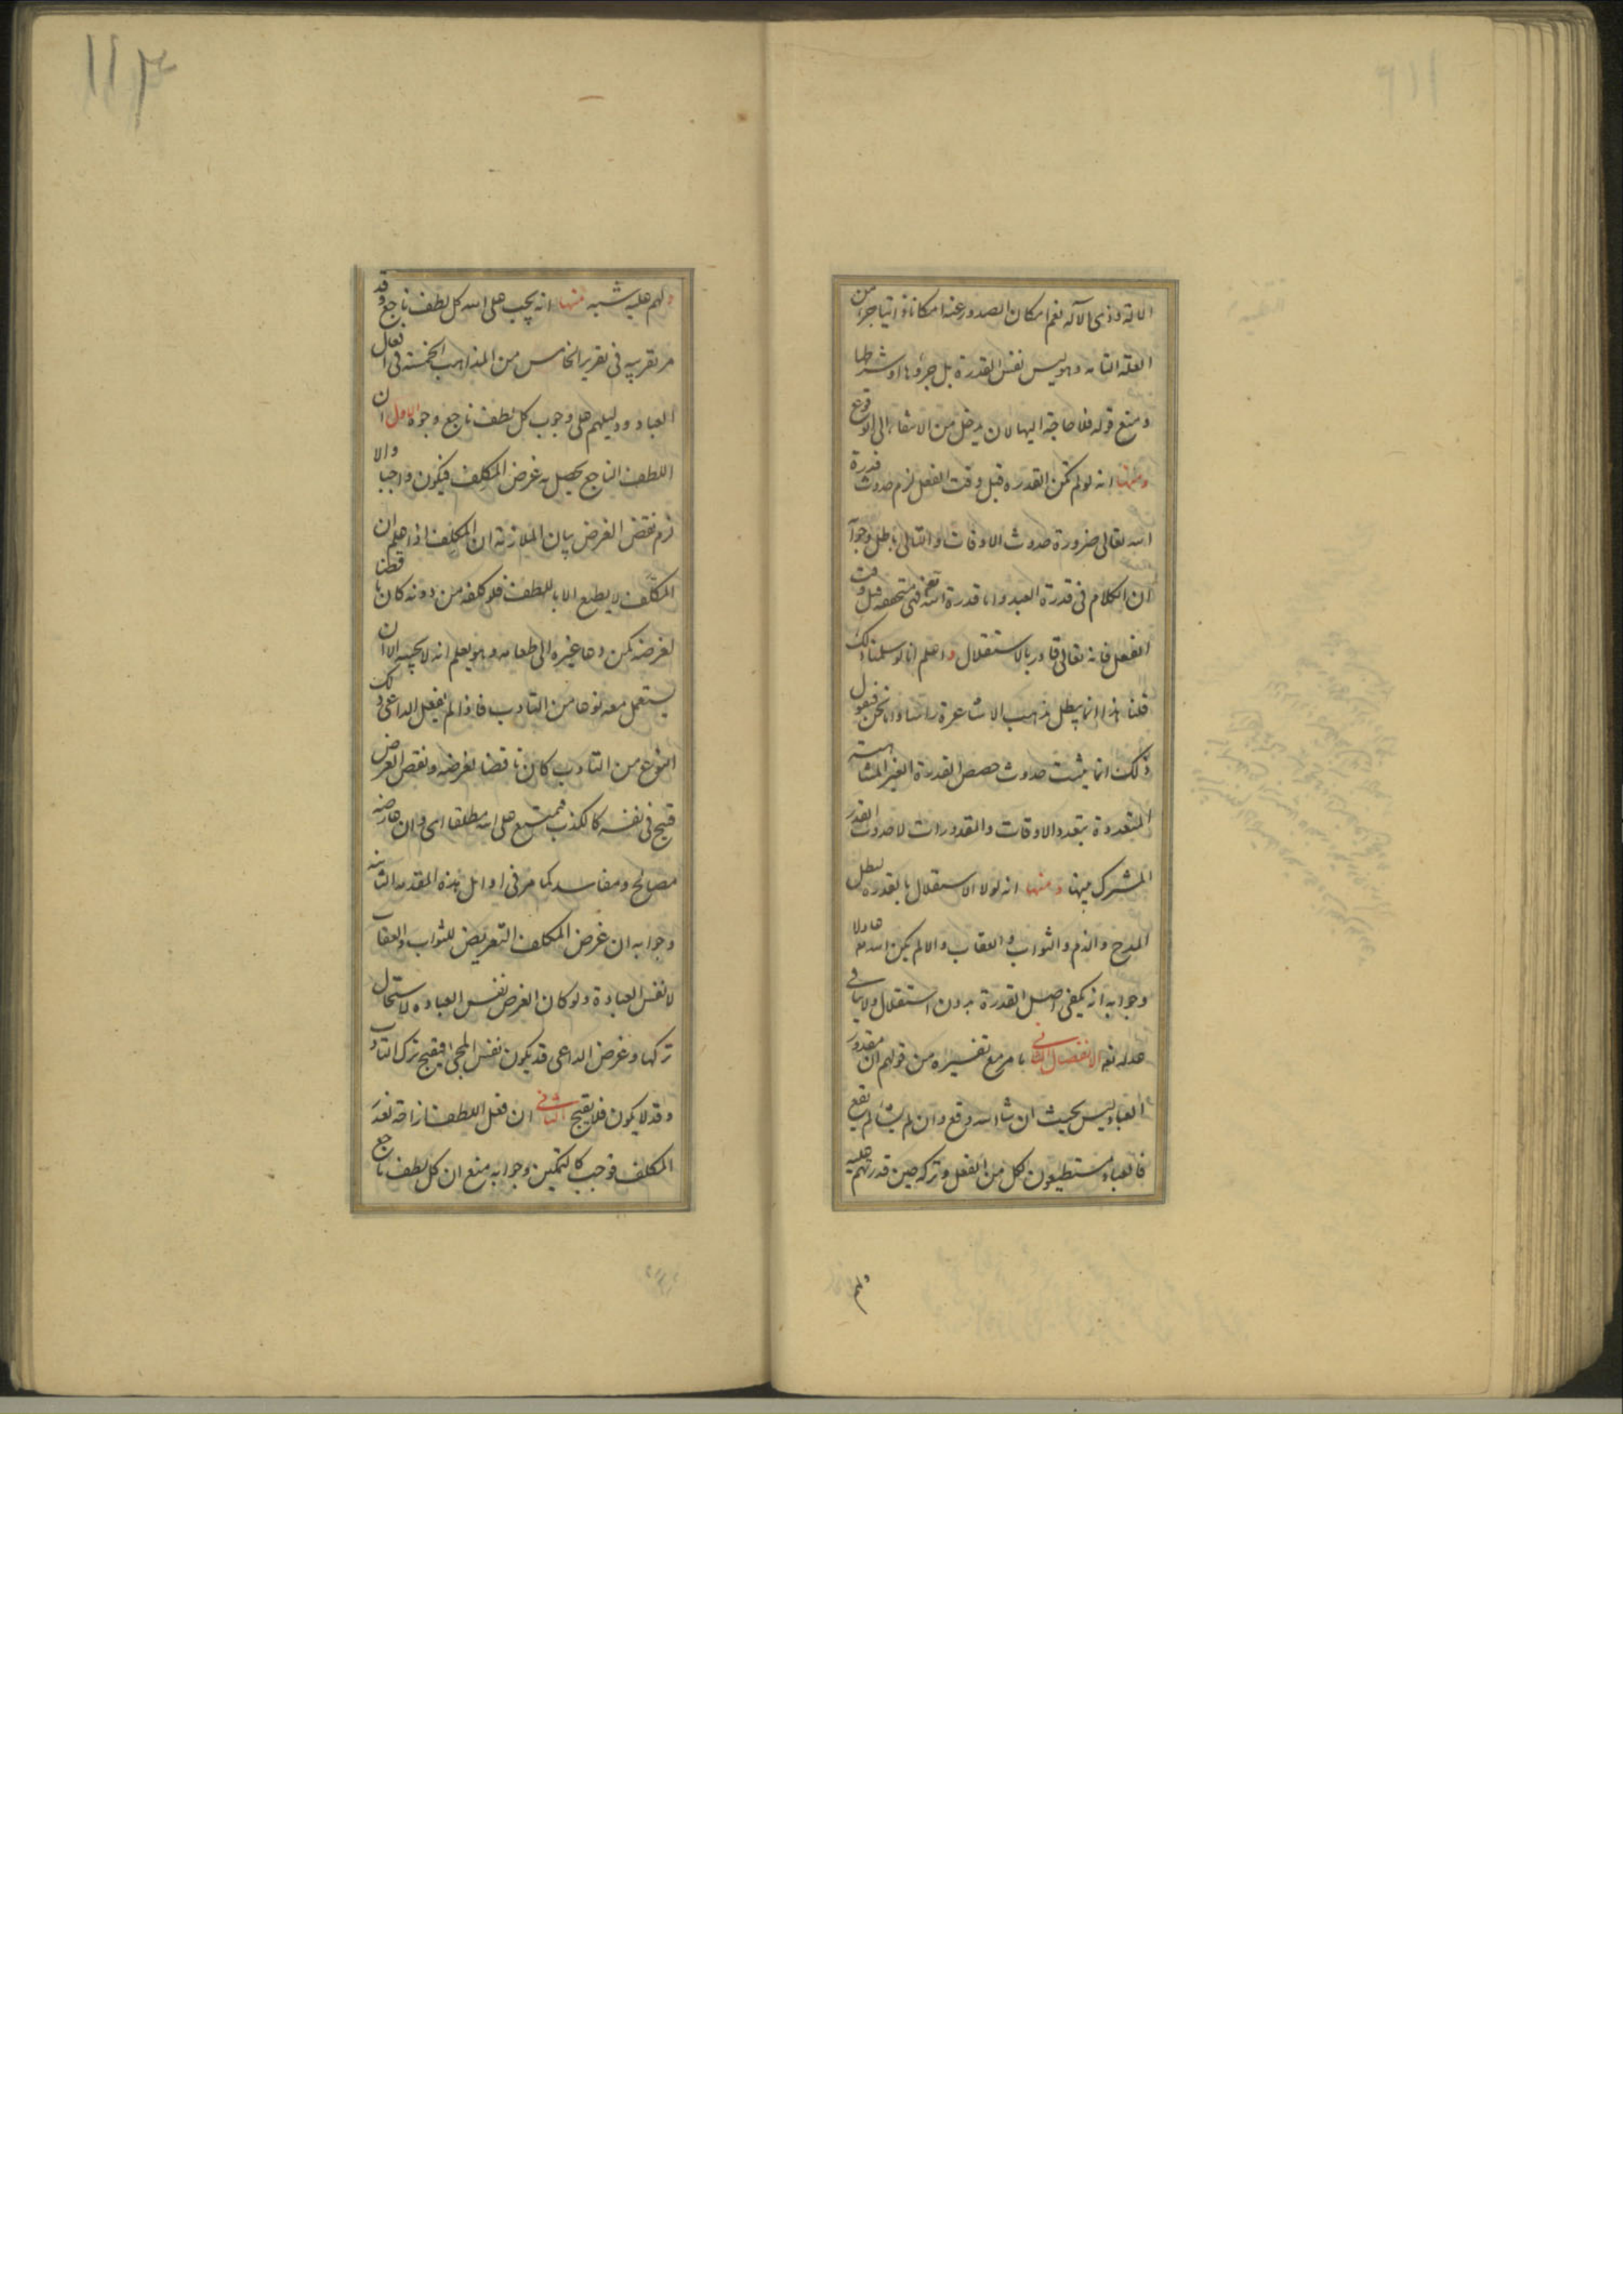 الآلة وذى الآلة نعم امكان الصدور عنه امكانا ذاتيا جزء من
العلة التامه وهو ليس نفس القدرة بل جزؤها او شرطها
ومنع قوله فلا حاجة اليها لان يدخل من الانتفاء الى الوقوع
ومنها انه لو لم تكن القدرة قبل وقت الفعل لزم حدوث قدرة
الله تعالى ضرورة حدوث الاوقات والتالى باطل وجوابه
ان الكلام فى قدرة العبد واما قدرة الله تعالى فهى متحققه قبل وقت
الفعل فانه تعالى قادر بالاستقلال واعلم انا لو سلمنا ذلك
قلنا هذا انما يبطل مذهب الاشاعرة راسا واما نحن فنقول
ذلك انما يثبت حدوث حصص القدرة الغير المتناهية
المتعددة بتعدد الاوقات والمقدورات لا حدوث القدر
المشترك بينها ومنها انه لولا الاستقلال بالقدره لبطل
المدح والذم والثواب والعقاب والا لم يكن الله عادلا
وجوابه انه يكفى اصل القدرة بدون استقلال ولا ينافى
عدله تع الانفصال الثانى ما مر مع تفسيره من قولهم ان مقدور
العباد ليس بحيث ان شاء الله وقع وان لم يشأ لم يقع
فالعباد مستطيعون لكل من الفعل وتركه حين قدرتهم عليه
ولهم
١١٣
ولهم عليه شبه منها انه يجب على الله كل لطف ناجع وقد
مر تقريبه فى تقرير الخامس من المذاهب الخمسة فى افعال
العباد ودليلهم على وجوب كل لطف ناجع وجوه الاول ان
اللطف الناجع يحصل به غرض المكلف فيكون واجبا والا
لزم نقض الغرض بيان الملازمة ان المكلف اذا علم ان
المكلف لا يطيع الا باللطف فلو كلفه من دونه كان ناقضا
لغرضه كمن دعا غيره الى طعامه وهو يعلم انه لا يجيبه الا ان
يستعمل معه نوعا من التادب فاذا لم يفعل الداعى ذلك
النوع من التادب كان ناقضا لغرضه ونقض الغرض
قبيح فى نفسه كالكذب فيمتنع على الله مطلقا اى وان عارضه
مصالح ومفاسد كما مر فى اوائل هذه المقدمه الثانية
وجوابه ان غرض المكلف التعريض للثواب والعقاب
لا نفس العبادة ولو كان الغرض نفس العباده لاستحال
تركها وغرض الداعى قد يكون نفس المجئ فيقبح ترك التادب
وقد لا يكون فلا يقبح الثانى ان فعل اللطف ازاحة لعذر
المكلف فوجب كالتمكين وجوابه منع ان كل لطف ناجع